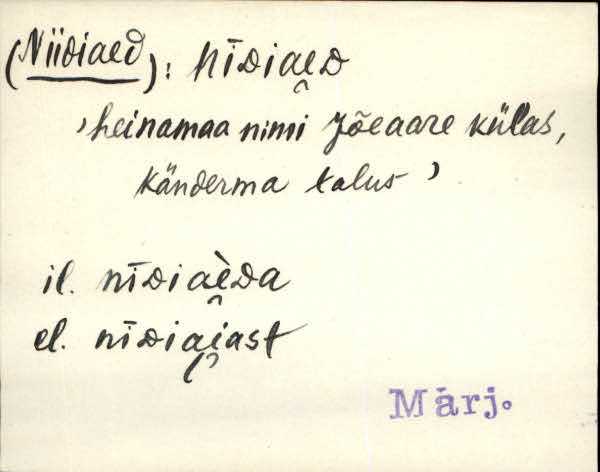 (Niidiaed): nīᴅiae̯ᴅ
'heinamaa nimi Jõeaare külas,
Känderma talus'
il. nīᴅiaè̯ᴅa
el. nīᴅiai̯ast
Märj.